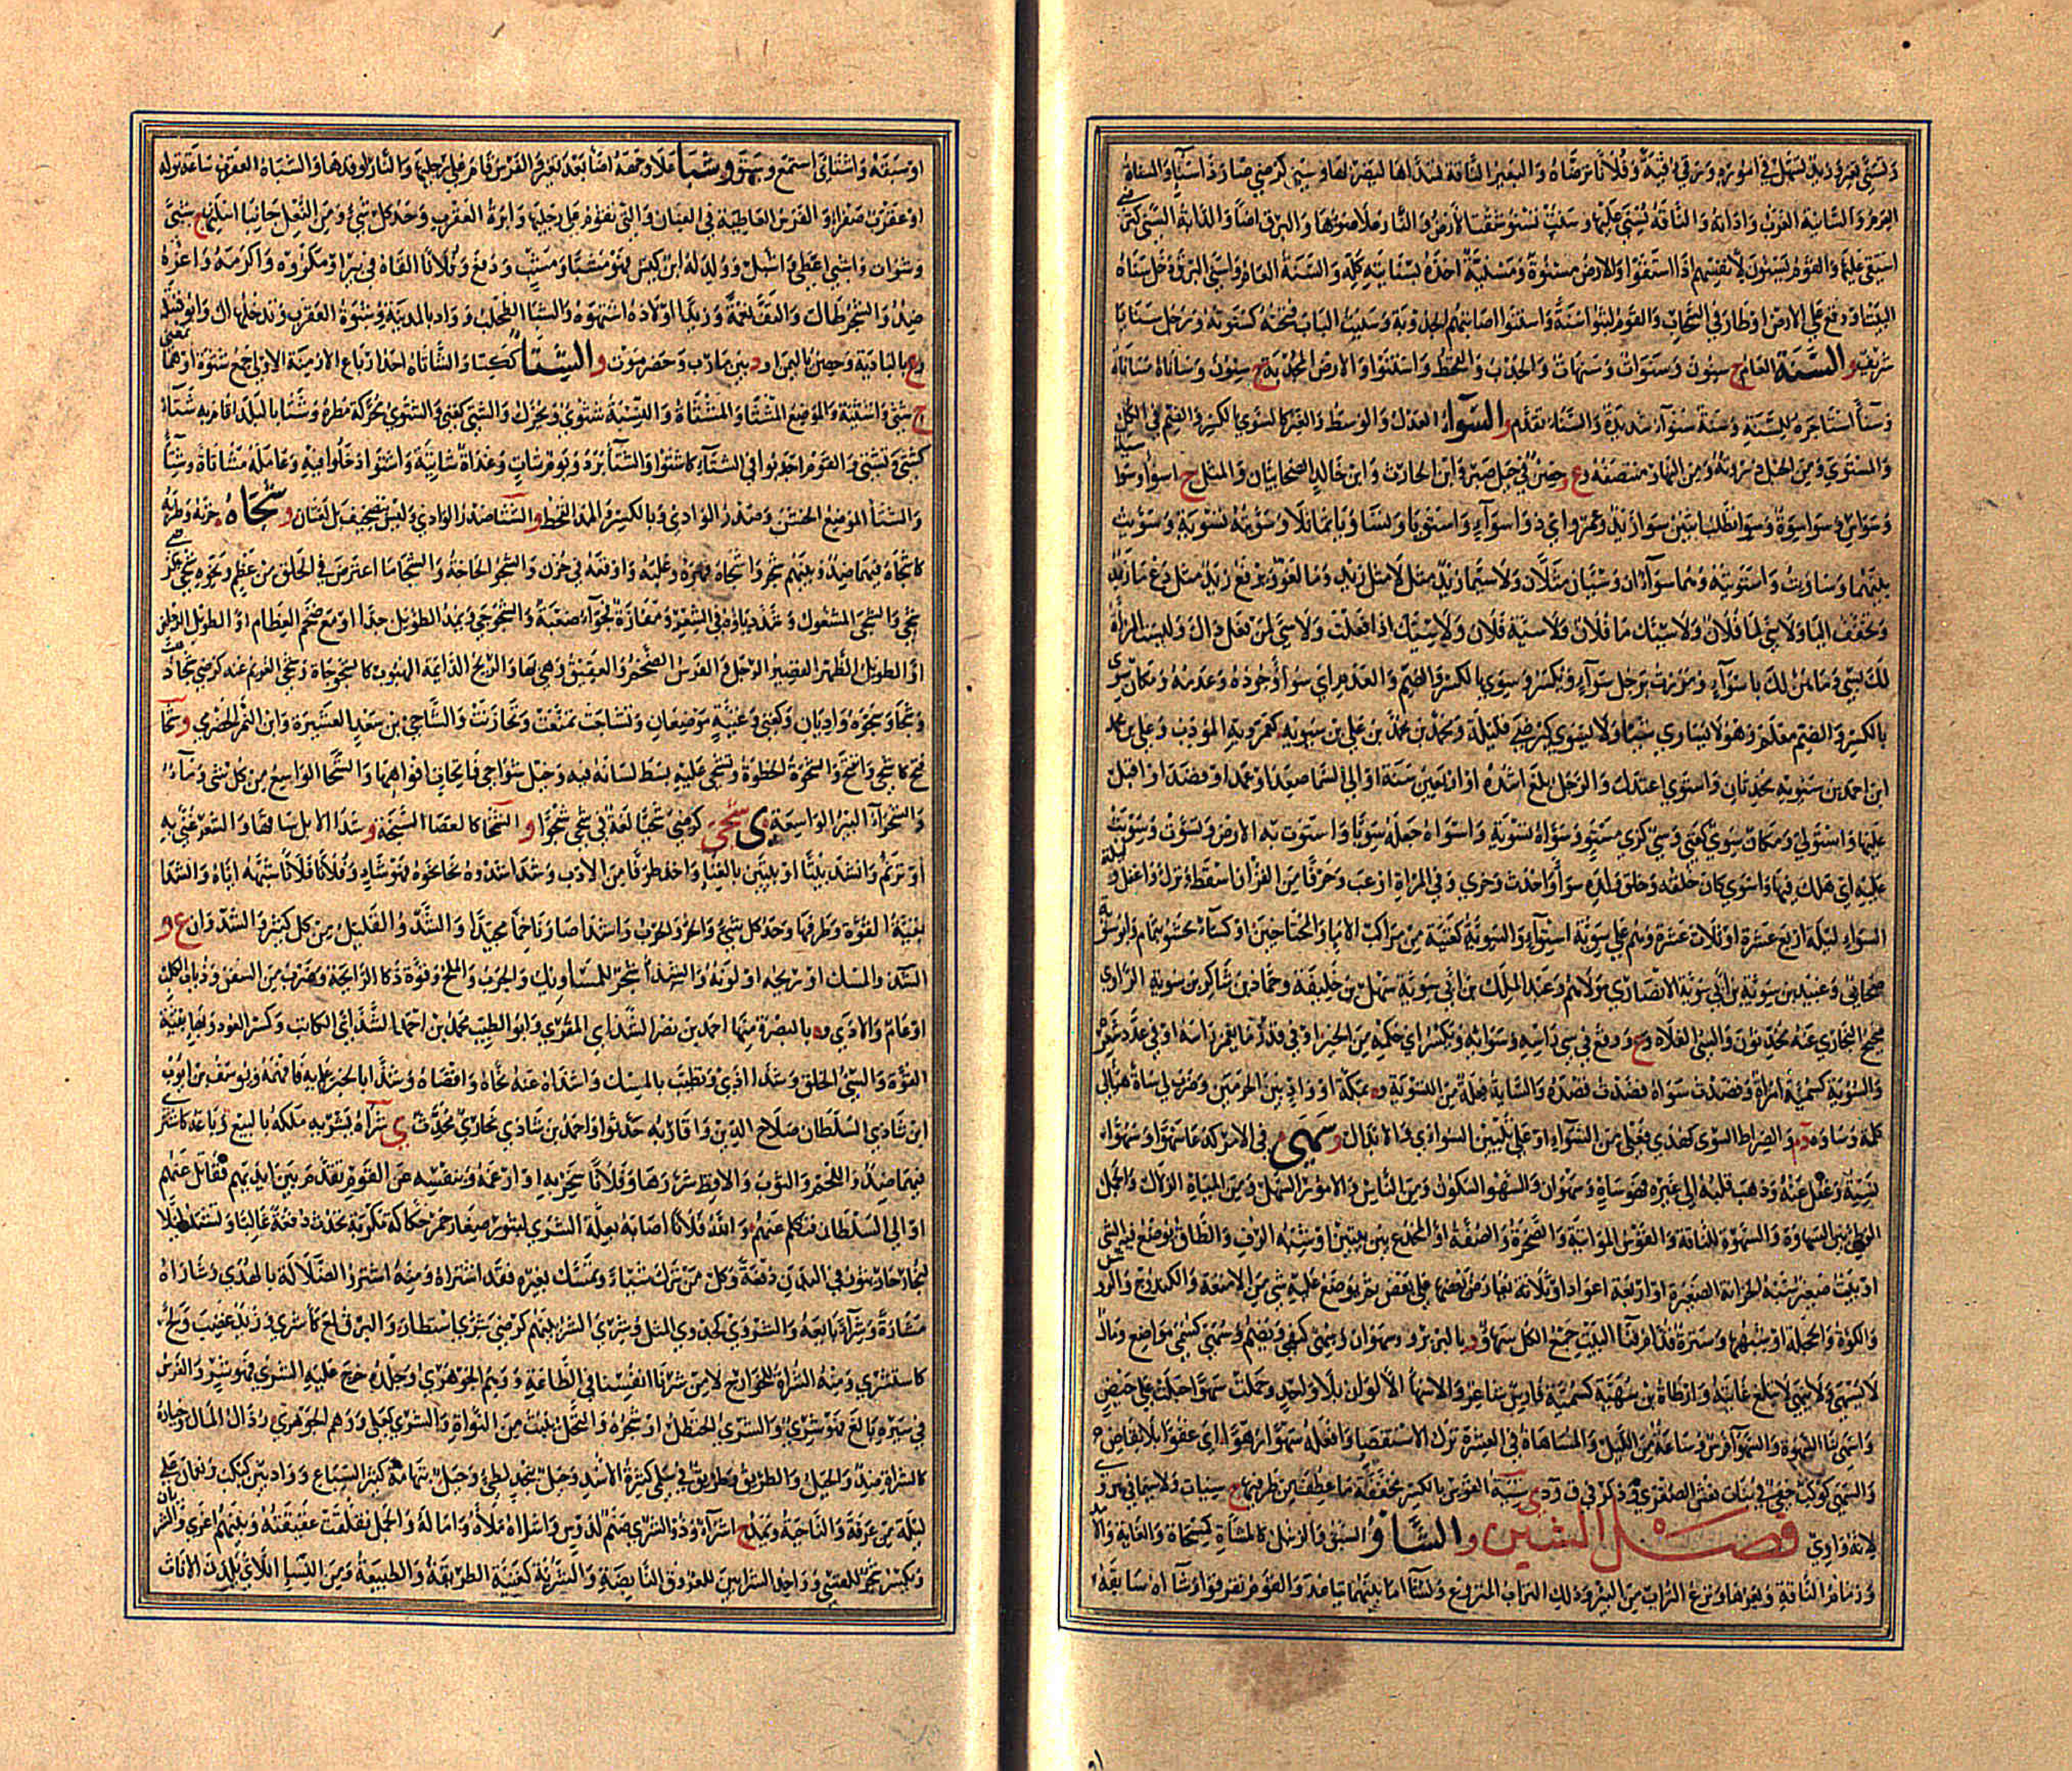 وتسنى تغير وزيد تسهل في اموره ورقي قنية وفلانا ترضاه والبعير الناقة تسداها ليضربها وسنى كرضي صار ذا سناء والسناة
العرم والسانية الغرب واداته والناقة يسنى عليها وسنت تسنو سقت الارض والنار علا ضوءها والبرق اضا والدابة السنى كغنى
استقى عليها والقوم يسنون لانفسهم اذا استقوا والارض مسنوة ومسنية اخذه بسنايته كله والسنة العام واسنى البرق دخل سناه
البيت او وقع على الارض او طار في السحاب والقوم لبثوا سنة واسنتوا اصابتهم الجدوبة وسنيت الباب فتحته كسنوته ورجل سنايا
شريف و السنة العام ج سنون وسنوات وسنهات والجدب والقحط واسنتوا والارض المجدبة ج سنون وساناه مساناة
وسناء استاجره للسنة وسنة سنواء شديدة والسنا تقدم و السواء العدل والوسط والغير كالسوى بالكسر والضم في الكل
والمستوى ومن الجبل ذروته ومن النهار منتصفه و ع وحصن في جبل صبر وابن الحارث وابن خالد الصحابيان والمثل ج اسواء وسواسية
وسواس وسواسوة وسواء تطلب اثنين سواء زيد وعمرو اي ذوا سواء واستويا وتساويا تماثلا وسويته تسوية وسويت
بينهما وساويت واستويته وهما سواآن وسيان مثلان ولا سيما زيد مثل لا مثل زيد وما لغو ويرفع زيد مثل دع ما زيد
وتخفف اليا ولا سي لما فلان ولا سيك ما فلان ولا سية فلان ولا سيك اذا فعلت ولا سي لمن فعل ذاك وليست المراة
لك بسي وما هن لك باسواء ومررت برجل سواء ويكسر وسوى بالكسر والضم والعدم اي سواء وجوده وعدمه ومكان سوى
بالكسر والضم معلم وهو لا يساوي شيئا ولا يسوى كيرضى قليلة ومحمد بن محمد بن علي بن سيويه كعمرويه المؤدب وعلي بن
ابن احمد بن سيويه محدثان واستوى اعتدل والرجل بلغ اشده او اربعين سنة والى السما صعد او عمد او قصد او اقبل
عليها واستولى ومكان سوي كغني وسي كزي مستو وسواه تسوية واسواه جعله سويا واستوت به الارض وتسوت وسويت
عليه اي هلك فيها واسوى كان خلقه وخلق ولده سواء واحدث وخزي وفي المراة اوعب وحرفا من القران اسقط وترك واغفل وليلة
السواء ليلة اربع عشرة او ثلاث عشرة وهم على سوية استواء والسوية كغنية من مراكب الاماء والمحتاجين او كساء محشو بثمام وابو سوية
صحابي وعبيد بن سوية بن ابي سوية الانصاري مولاهم وعبد الملك بن ابي سوية سهل بن خليفة وحماد بن شاكر بن سوية الراوي
صحيح البخاري عنه محدثون والسي الفلاة و ع ووقع في سي راسه وسوائه ويكسر اي حكمه من الخير او في قدر ما يغمر راسه او في عدد شعره
والسوية كسمية امراة وقصدت سواه قصدت قصده والساية فعلة من التسوية و ة بمكة او واد بين الحرمين وضرب لي ساية هيا لي
كلمة وساوه د م و الصراط السوى كهدى فعلى من السواء او على تليين السوءى والابدال و سهي في الامر كدعا سهوا وسهوا
نسيه وغفل عنه وذهب قلبه الى غيره فهو ساه وسهوان والسهو السكون ومن الناس والامور السهل ومن المياه الزلال والجمل
الوطي بين السهاوة والسهوة للناقة والقوس المواتية والصخرة والصفة او المخدع بين بيتين او شبه الرف والطاق يوضع فيه الشي
او بيت صغير شبه الخزانة الصغيرة او اربعة اعواد او ثلاثة يعارض بعضها على بعض ثم يوضع عليه شي من الامتعة والكندوج والروشن
والكوة والحجلة او شبهها وسترة قدام فنا البيت جمع الكل سهاء و د بالبربر وسهوان وسهي كسمي مواضع ومال
لا يسهى ولا ينهى لا تبلغ غايته وارطاة بن سهية كسمية فارس شاعر والاسهاء الالوان بلا واحد وحملت سهوا حبلت على حيض
واسهى بنى السهوة والسهواء فرس وساعة من الليل والمساهاة في العشرة ترك الاستقصاء وافعله سهوا رهوا اي عفوا بلا تقاض
والسهى كوكب خفي في بنات نعش الصغرى وذكر في ق و د ي سية القوس بالكسر مخففة ما عطف من طرفيها ج سيات ولا سيما في س و
لانه واوي فصل الشين و الشاو السبق والزبيل كالمشآة كمسحاة والغاية والامد
وزمام الناقة وبعرها ونزع التراب من البير وذلك التراب المنزوع وتشاءا ما بينهما تباعد والقوم تفرقوا وشاءاه سابقه
او سبقه واشتاى استمع وسبق و شبا علا وجهه اضا بعد تغير والفرس قام على رجليه والنار اوقدها والشباة العقرب ساعة تولد
او عقرب صفراء والفرس العاطية في العنان والتي تقوم على رجليها وابرة العقرب وحد كل شي ومن النعل جانبا اسلتها ج شبى
وشبوات واشبى اعطى واشبل وولد له ابن كيس فهو مشبى ومشب ودفع وفلانا القاه في بير او مكروه واكرمه واعزه
ضد والشجر طال والتف نعمة وزيدا اولاده اشبهوه والشبا الطحلب وواد بالمدينة وشبوة العقرب وتدخلها ال وابو قبيلة
و ع بالبادية وحصن باليمن او د بين مارب وحضرموت و الشتا ككساء والشاتاه احد ارباع الازمنة الاولى جمع شتوة او هما بمعنى
ج شتي واشتية والموضع المشتا والمشتاة والنسبة شتوي ويحرك والشتي كغني والشتوي محركة مطره وشتا بالبلد اقام به شتاء
كشتى وتشتى والقوم اجدبوا في الشتاء كاشتوا والشتاء برد ويوم شات وغداة شاتية واشتوا دخلوا فيه وعامله مشاتاة وشتاء
والشتا الموضع الخشن وصدر الوادي وبالكسر والمد القحط و الشثا صدر الوادي وليس تصحيف بل لغتان و شجاه حزنه وطربه
كاشجاه فيهما ضد وبينهم شجر واشجاه قهره وغلبه واوقعه في حزن والشجو الحاجة والشجا ما اعترض في الحلق من عظم ونحوه شجي
شجى والشجي المشغول وشدد ياؤه في الشعر ومفازة شجواء صعبة والشجوجى ويمد الطويل جدا او مع ضخم العظام او الطويل الرجلين
او الطويل الظهر القصير الرجل والفرس الضخم والعقعق وهي بها والريح الدايمة الهبوب كالشجوجاة وشجي الغريم عنه كرضي
وشجا وشجوة واديان وكغني وغنية موضعان وتشاجت تمنعت وتحازنت والشاجي بن سعد العشيرة وابن النمر الحضرمي و شحا
فتح كاشحى وانفتح والشحوة الخطوة وتشحى عليه بسط لسانه فيه وخيل شواحي فاتحات افواهها والشحا الواسع من كل شي وماء
والشحواء البير الواسعة ي شحي كرضي شحيا لغة في شحى شحوا و الشخا كالعصا السبخة و شدا الابل ساقها والشعر غنى به
او ترنم وانشد بيتا او بيتين بالغناء واخذ طرفا من الادب وشدا شدوه نحا نحوه فهو شاد وفلانا فلانا شبهه اياه والشدا
بقية القوة وطرفها وحد كل شي والحر والجرب واشدى صار ناخما مجيدا والشدو القليل من كل كثير والشدوان ع و
الشذو المسك او ريحه او لونه والشذا شجر للمساويك والجرب والملح وقوة ذكا الرايحة وضرب من السفن وذباب الكلب
او عام والاذى و ة بالبصرة منها احمد بن نصر الشذاي المقري وابو الطيب محمد بن احمد الشذاي الكاتب وكسر العود وبها بقية
القوة والسي الخلق وشذا اذى وتطيب بالمسك واشذاه عنه نحاه واقصاه وشذا بالخبر علم به فافهمه ويوسف بن ايوب
ابن شاذي السلطان صلاح الدين واقاربه حدثوا واحمد بن شاذي بخاري محدث ي شراه يشريه ملكه بالبيع وباعه كاشترى
فيهما ضد واللحم والثوب والاقط شررها وفلانا سخر به او ارغمه وبنفسه عن القوم تقدم بين ايديهم فقاتل عنهم
او الى السلطان فتكلم عنهم والله فلانا اصابه بعلة الشرى لبثور صغار حمر حكاكة مكربة تحدث دفعة غالبا وتشتد ليلا
لبخار حار يثور في البدن دفعة وكل من ترك شيئا وتمسك بغيره فقد اشتراه ومنه اشتروا الضلالة بالهدى وشاراه
مشاراة وشراء بايعه والشروى كجدوى المثل وشري الشر بينهم كرضي شرى استطار والبرق لمع كاشرى وزيد غضب ولج
كاستشرى ومنه الشراة للخوارج لا من شرينا انفسنا في الطاعة ووهم الجوهري وجلده خرج عليه الشرى فهو شر والفرس
في سيره بالغ فهو شري والشري الحنظل او شجره والنخل ينبت من النواة والشرى كعلى ووهم الجوهري رذال المال وخياره
كالشراة ضد والجبل والطريق وطريق في سلمى كثيرة الاسد وجبل بنجد لطيء وجبل بتهامة كثير السباع وواد بين كبكب ونعمان على
ليلة من عرفة والناحية ويمد ج اشراء وذو الشرى صنم لدوس واشراه ملاه واماله والجمل تفلقت عقيقته وبينهم اغرى والشريان
ويكسر شجر للقسي وواحد الشرايين للعروق النابضة والشرية كغنية الطريقة والطبيعة ومن النسا اللاتي يلدن الاناث